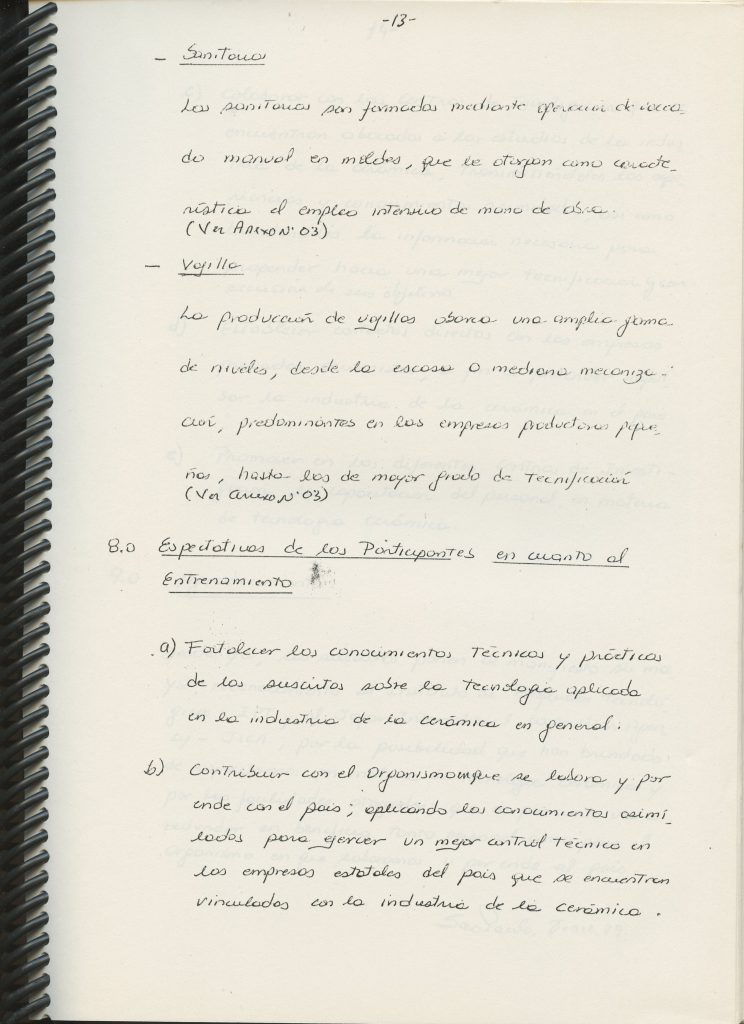 -13-
- Sanitarios
Los sanitarios son formados mediante operación de vacea-
do manual en moldes, que le otorgan como caracte-
rística el empleo intensivo de mano de obra.
(Ver Anexo Nº 03)
- Vajilla
La producción de vajillas abarca una amplia gama
de niveles, desde la escasa o mediana mecaniza-
ción, predominantes en las empresas productoras peque-
ñas, hasta las de mayor grado de tecnificación
(Ver anexo Nº 03)
8.0 Espectativas de los Participantes en cuanto al
Entrenamiento
a) Fortalecer los conocimientos técnicos y prácticos
de los suscritos sobre la tecnología aplicada
en la industria de la cerámica en general.
b) Contribuir con el Organismo que se labora y por
ende con el pais; aplicando los conocimientos asimi-
lados para ejercer un mejor control técnico en
las empresas estatales del pais que se encuentran
vinculados con la industria de la cerámica.